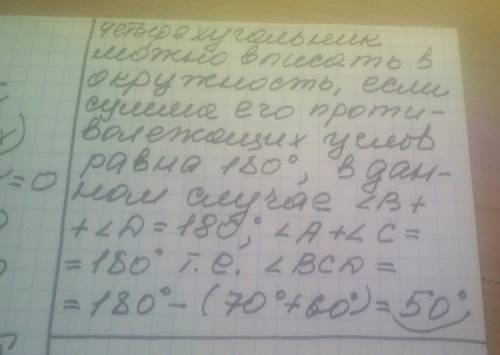 четырехугольник
можно вписать в
окружность, если
сумма его проти-
волежащих услов
равна 180°, в дан-
ном случае ∠B+
+∠D=180°; ∠A+∠C=
=180° т.е. ∠BCD=
=180°-(70°+60°)=50°
=0